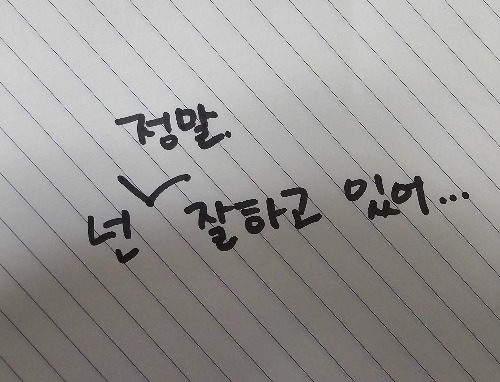 정말.
넌 잘하고 있어...